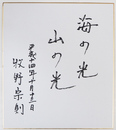 海の光
山の光
平成十四年十月十三日
牧野宗則